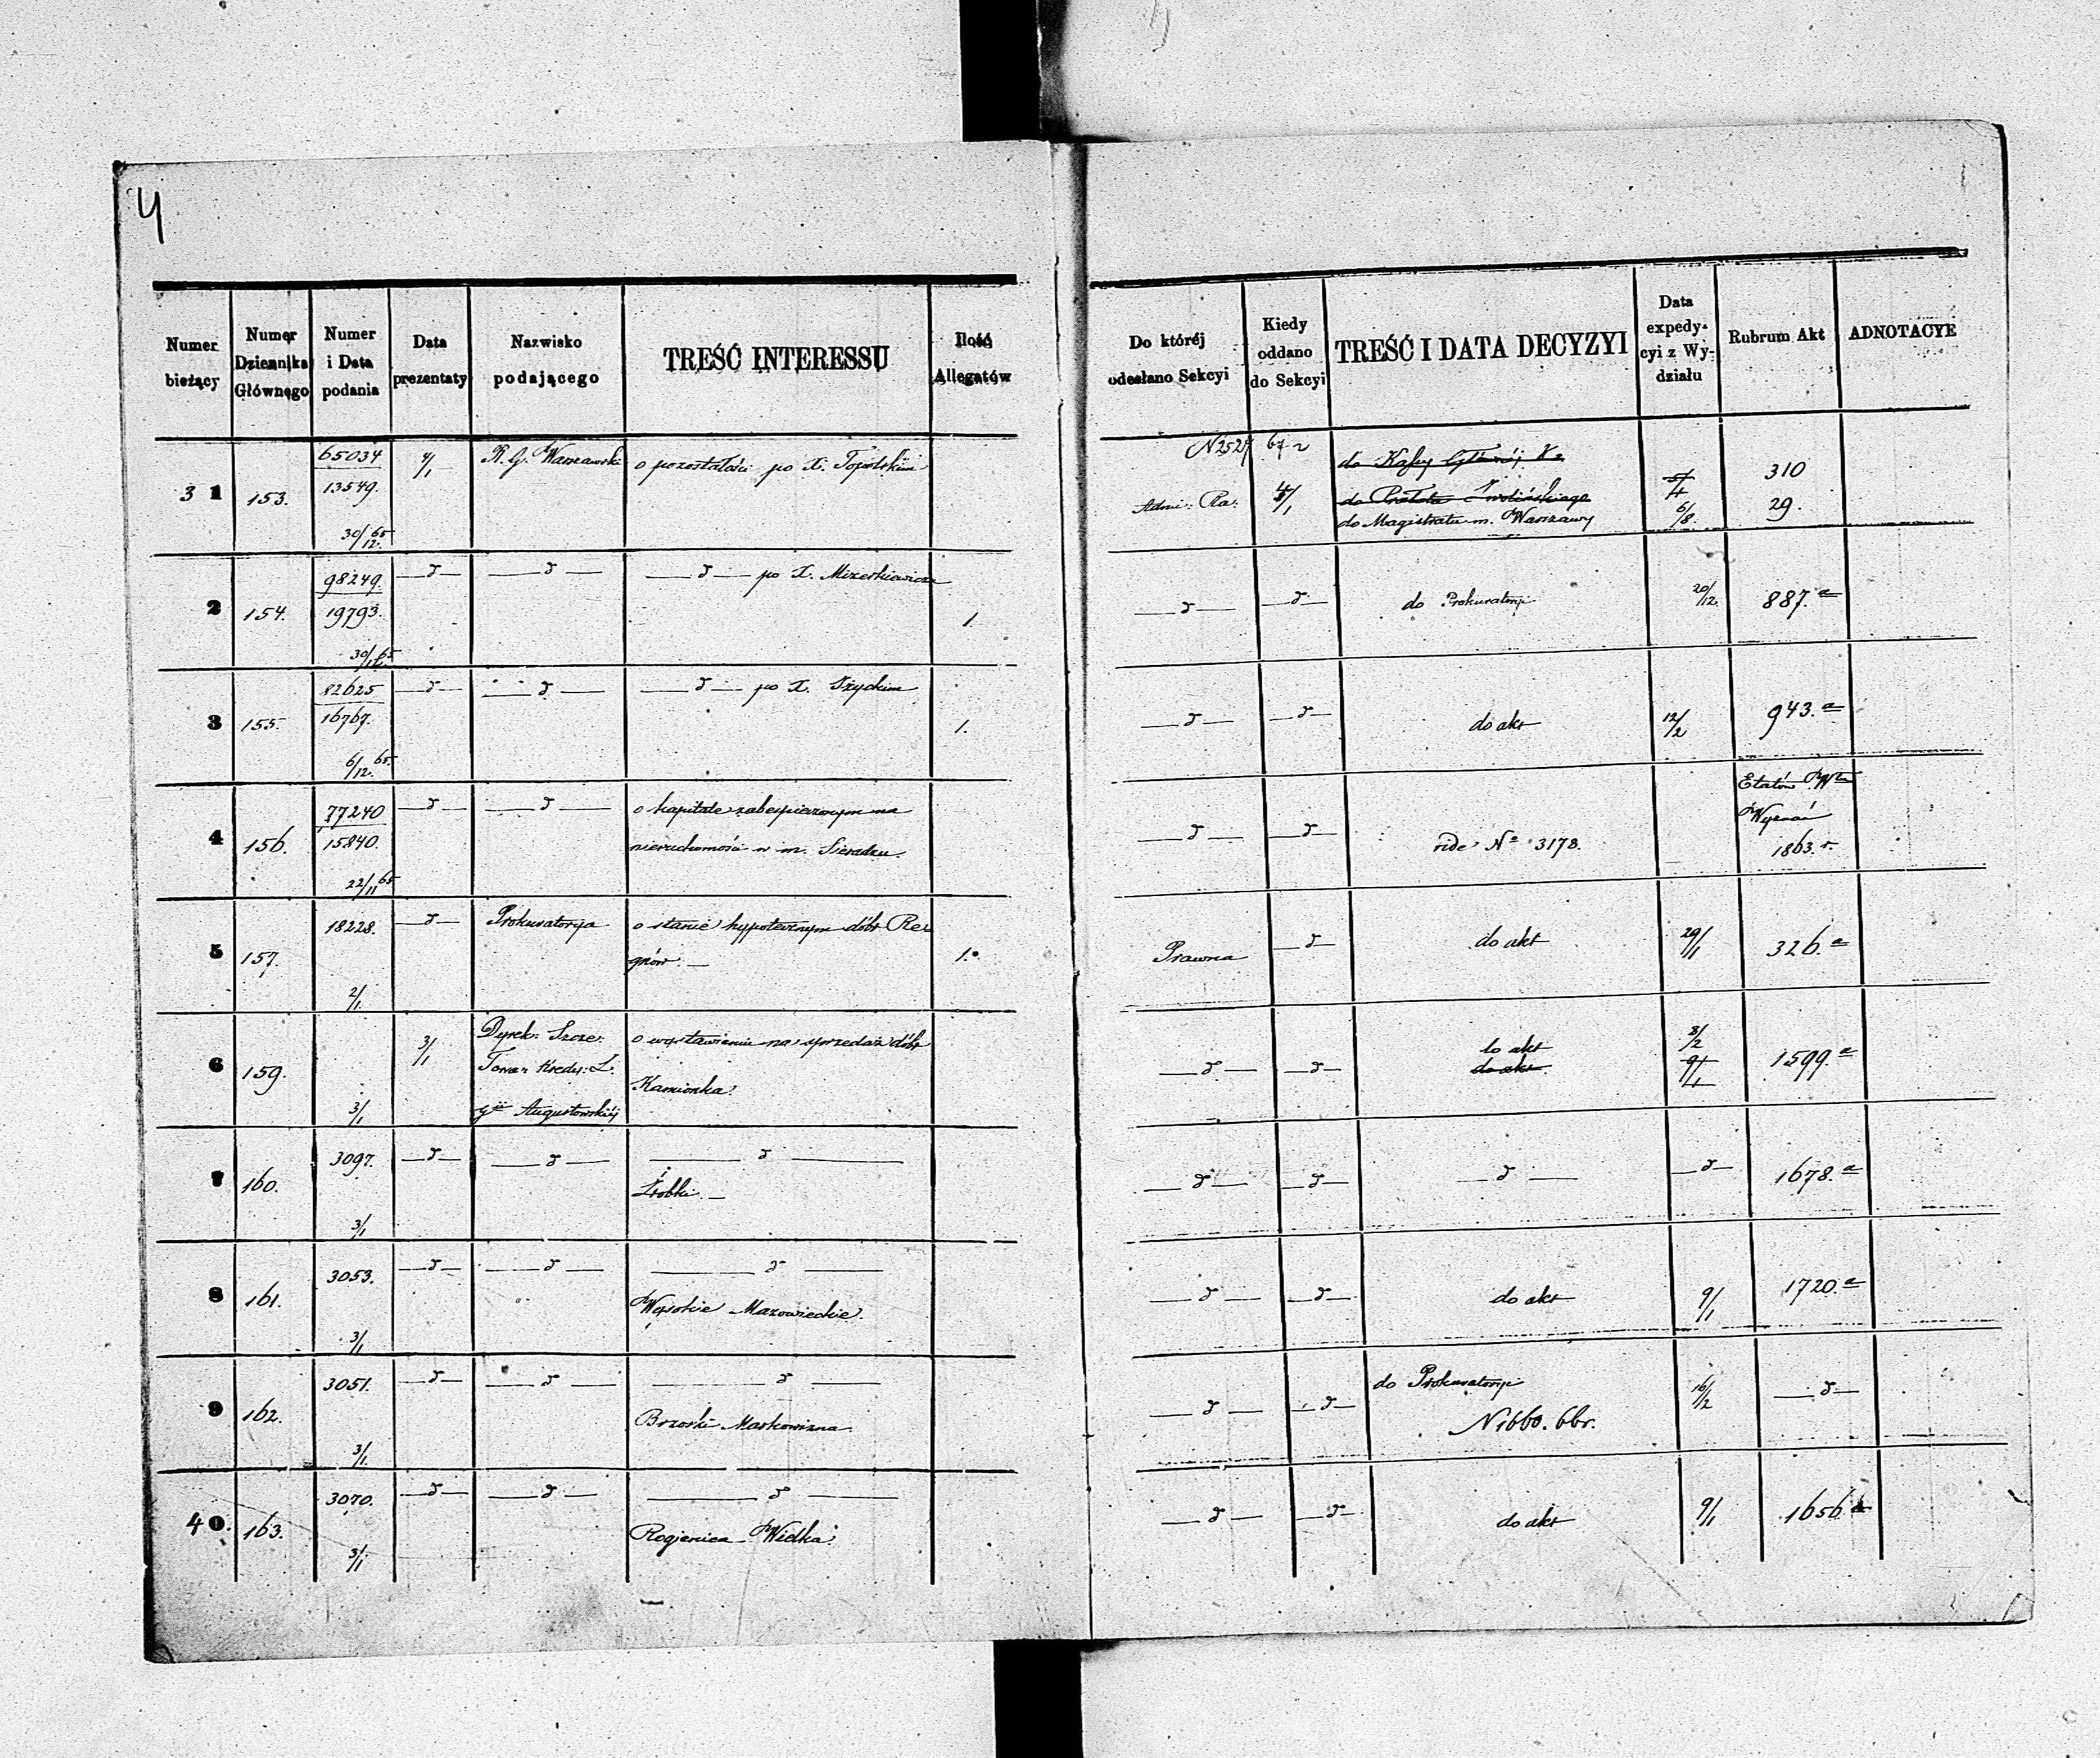 4
Numer bieżący
Numer Dziennika Głównego
Numer i Data podania
Data prezentaty
Nazwisko podającego
TREŚĆ INTERESSU
Ilość Allegatów
Do której odesłano Sekcyi
Kiedy oddano do Sekcyi
TREŚĆ I DATA DECYZYI
Data expedycyi z Wydziału
Rubrum Akt
ADNOTACYE
31 153. 65034 13549. 30/12 65 4/1 R. G. Warszawski o pozostałości po X. Topolskim
Admi: 4/1 do Magistratu m. Warszawy 6/8. 310 29.
2 154. 98249. 19793. 30/12 65 —d— —d— —d— po X. Mizerkiewiczu 1.
—d— —d— do Prokuratoryi 20/12. 887.a
3 155. 82625 16767. 6/12. 65. —d— —d— —d— po X. Iżyckim 1.
—d— —d— do akt 12/2 943.a
4 156. 77240 15840. 22/11 65 —d— —d— o kapitale zabespieczonym na
nieruchomości w m. Sieradzu.
—d— —d— vide No 3178. Etatów
Wyznań
1863. r.
5 157. 18228. 2/1. —d— Prokuratorya o stanie hypotecznym dóbr Re
gnów. — 1.
Prawna —d— do akt 29/1 326.a
6 159. 3/1 3/1 Dyrek: Szcze: o wystawieniu na sprzedaż dóbr
Towa: Kredy: Z. Kamionka.
Gii Augustowskiéj
—d— —d— do akt 8/2 1599.a
do akt 9/1
7 160. 3097. 3/1 —d— —d— —d—
—d— —d— —d— —d— 1678.a
8 161. 3053. 3/1 —d— —d— —d—
Wysokie Mazowieckie.
—d— —d— do akt 9/1 1720.a
9 162. 3051. 3/1. —d— —d— —d—
Brzoski Markowizna
—d— —d— do Prokuratoryi 16/2 —d—
N1660. 66r.
40. 163. 3070. 3/1. —d— —d— —d—
Rogienica Wielka.
—d— —d— do akt 9/1 1656.a